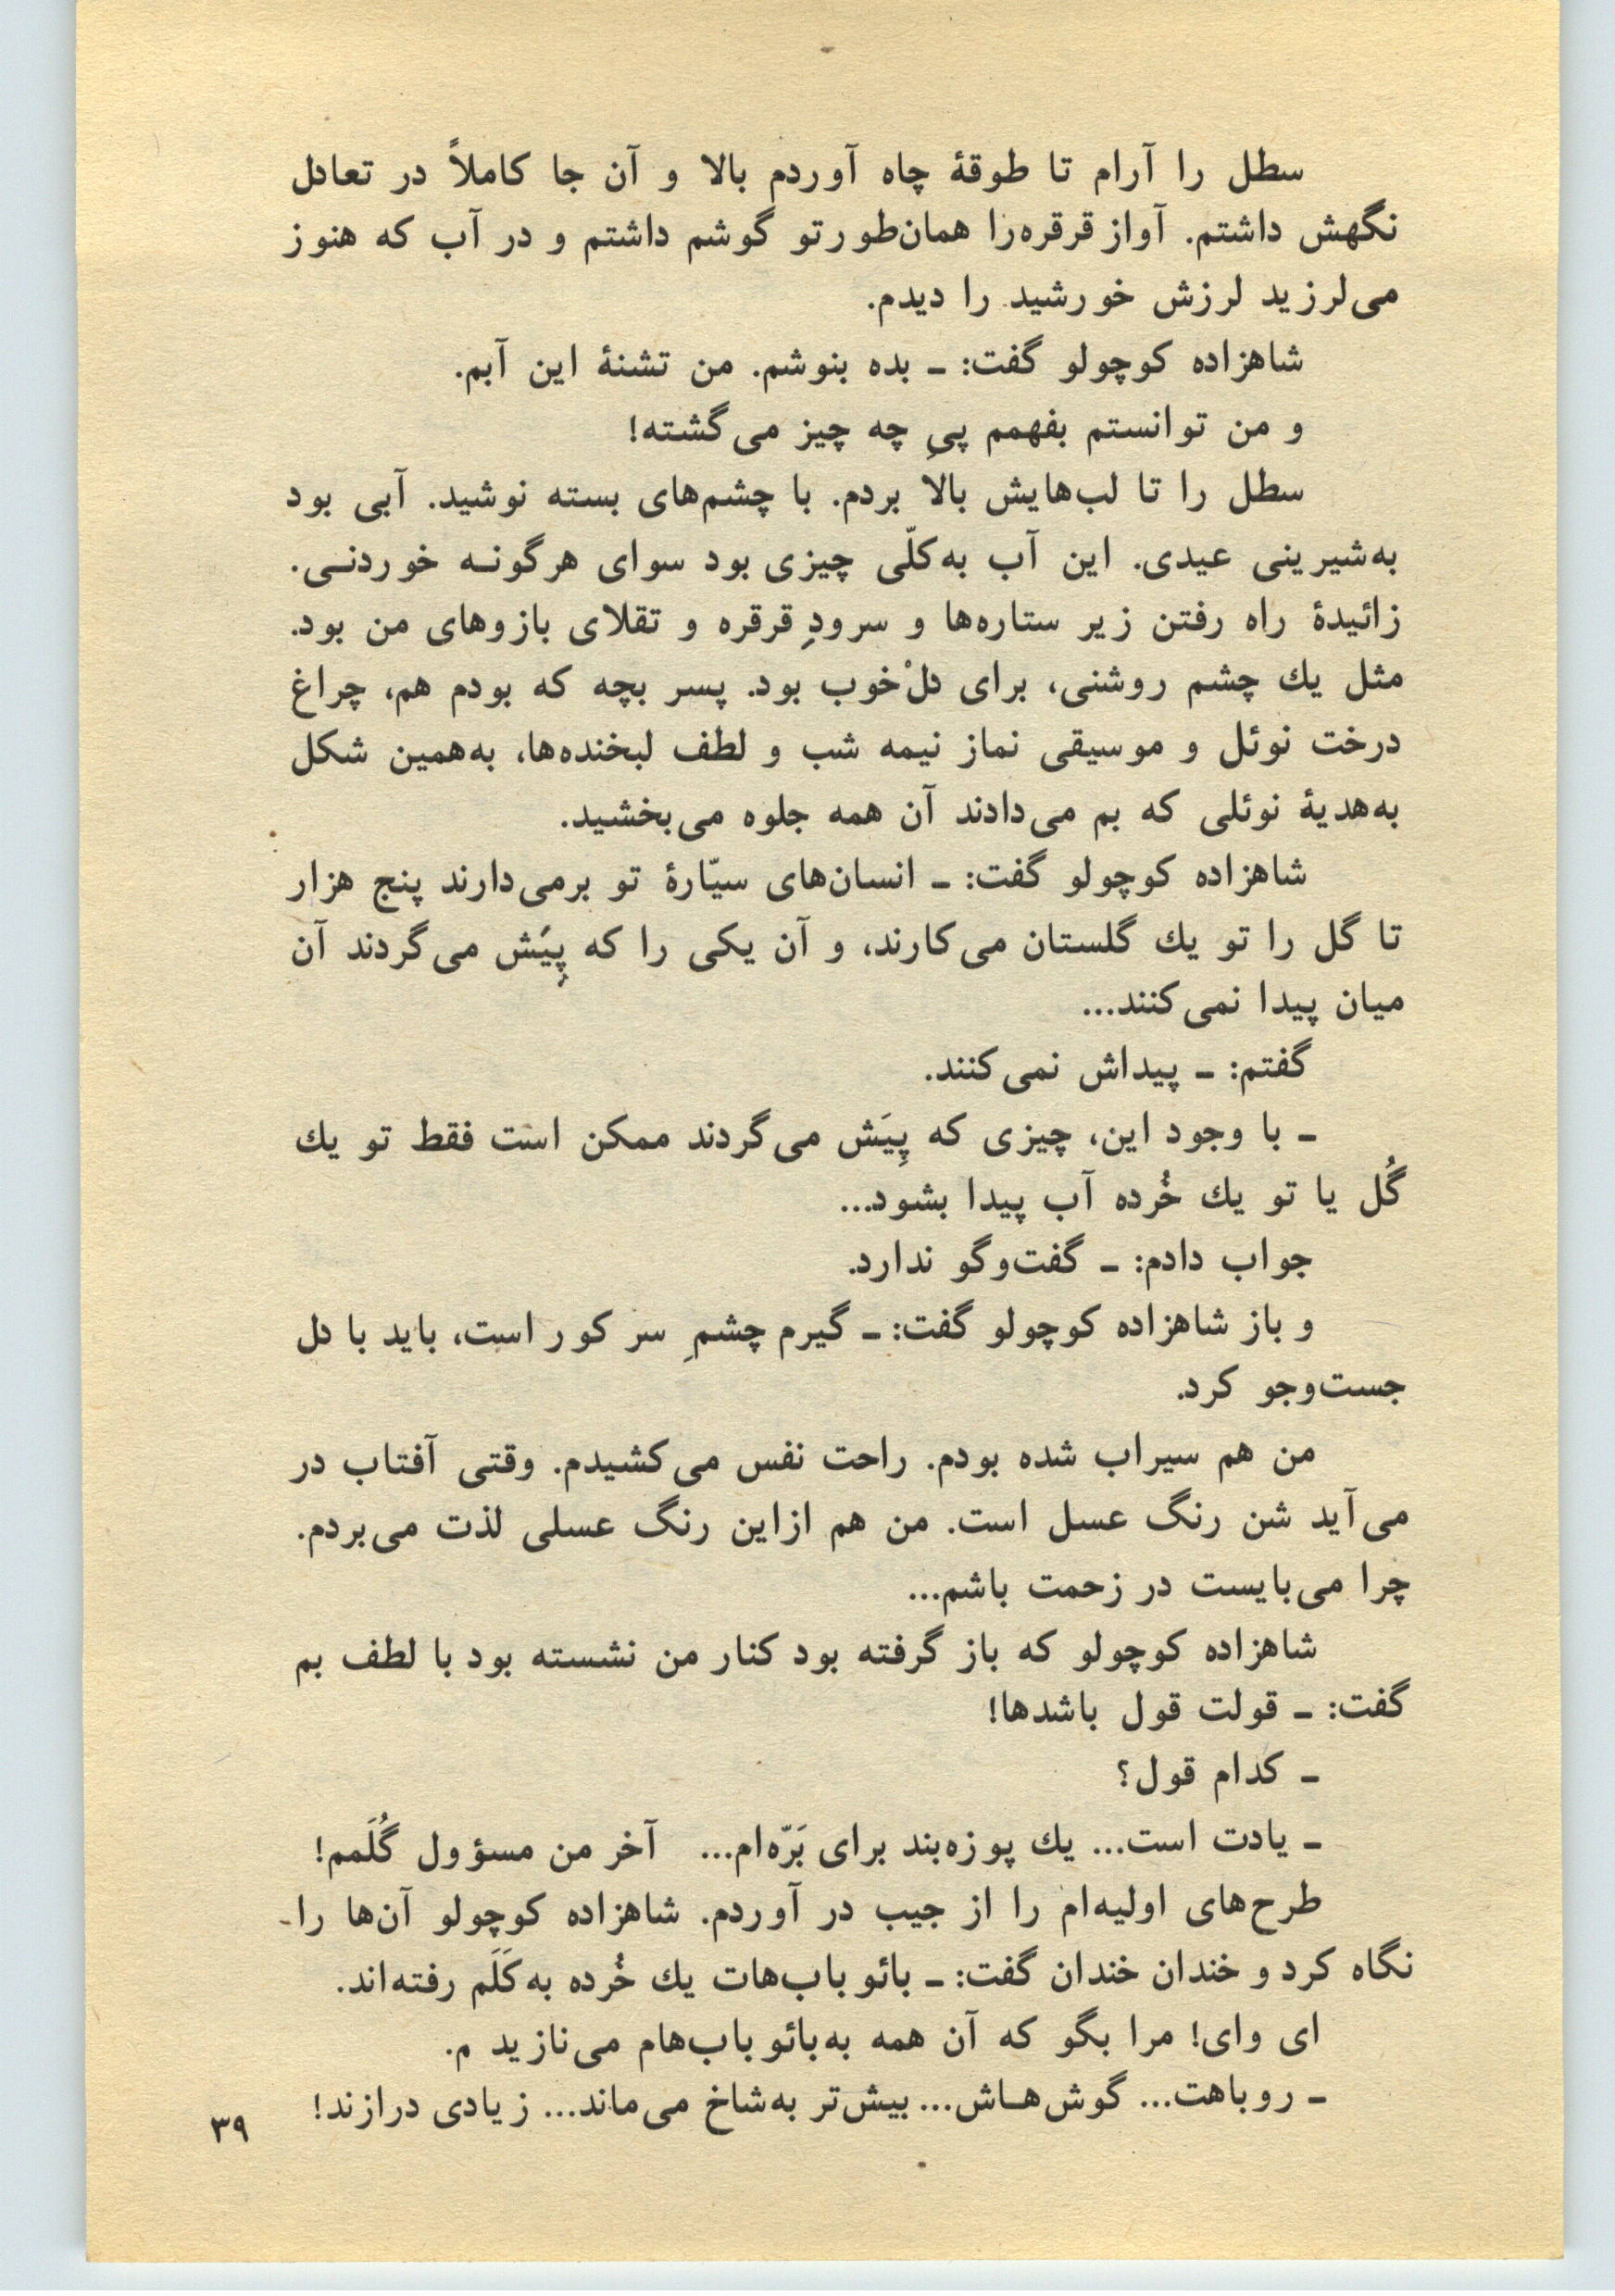 سطل را آرام تا طوقهٔ چاه آوردم بالا و آن جا کاملاً در تعادل
نگهش داشتم. آواز قرقره‌را همان‌طور تو گوشم داشتم و در آب که هنوز
می‌لرزید لرزش خورشید را دیدم.
شاهزاده کوچولو گفت: ـ بده بنوشم. من تشنهٔ این آبم.
و من توانستم بفهمم پیِ چه چیز می‌گشته!
سطل را تا لب‌هایش بالا بردم. با چشم‌های بسته نوشید. آبی بود
به‌شیرینی عیدی. این آب به‌کلّی چیزی بود سوای هرگونـه خوردنـی.
زائیدهٔ راه رفتن زیر ستاره‌ها و سرودِ قرقره و تقلای بازوهای من بود.
مثل یك چشم روشنی، برای دلْ‌خوب بود. پسر بچه که بودم هم، چراغ
درخت نوئل و موسیقی نماز نیمه شب و لطف لبخنده‌ها، به‌همین شکل
به‌هدیهٔ نوئلی که بم می‌دادند آن همه جلوه می‌بخشید.
شاهزاده کوچولو گفت: ـ انسان‌های سیّارهٔ تو برمی‌دارند پنج هزار
تا گل را تو یك گلستان می‌کارند، و آن یکی را که پِیَش می‌گردند آن
میان پیدا نمی‌کنند...
گفتم: ـ پیداش نمی‌کنند.
ـ با وجود این، چیزی که پِیَش می‌گردند ممکن است فقط تو یك
گُل یا تو یك خُرده آب پیدا بشود...
جواب دادم: ـ گفت‌وگو ندارد.
و باز شاهزاده کوچولو گفت: ـ گیرم چشمِ سر کور است، باید با دل
جست‌وجو کرد.
من هم سیراب شده بودم. راحت نفس می‌کشیدم. وقتی آفتاب در
می‌آید شن رنگ عسل است. من هم ازاین رنگ عسلی لذت می‌بردم.
چرا می‌بایست در زحمت باشم...
شاهزاده کوچولو که باز گرفته بود کنار من نشسته بود با لطف بم
گفت: ـ قولت قول باشدها!
ـ کدام قول؟
ـ یادت است... یك پوزه‌بند برای بَرّه‌ام... آخر من مسؤول گُلَمم!
طرح‌های اولیه‌ام را از جیب در آوردم. شاهزاده کوچولو آن‌ها را
نگاه کرد و خندان خندان گفت: ـ بائوباب‌هات یك خُرده به‌کَلَم رفته‌اند.
ای وای! مرا بگو که آن همه به‌بائوباب‌هام می‌نازیدم.
ـ روباهت... گوش‌هـاش... بیش‌تر به‌شاخ می‌ماند... زیادی درازند!
۳۹